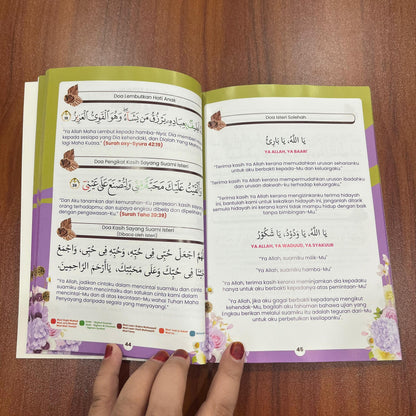 Doa Lembutkan Hati Anak
بِعِبَادِهِ يَرْزُقُ مَن يَشَاءُ وَهُوَ الْقَوِيُّ الْعَزِيزُ
"Ya Allah Maha Lembut kepada hamba-Nya; Dia memberi
kepada sesiapa yang Dia kehendaki, dan Dialah Yang Maha
Maha Kuasa." (Surah asy-Syura 42:19)
Doa Pengikat Kasih Sayang Suami Isteri
عَلَيْكَ مَحَبَّةً مِّنِّي وَلِتُصْنَعَ عَلَىٰ عَيْنِي
"Dan Aku tanamkan dari kemurahan-Ku perasaan kasih sayang
terhadapmu; dan supaya engkau dibela dan dipelihara dengan
pengawasan-Ku." (Surah Taha 20:39)
Doa Kasih Sayang Suami Isteri
(Dibaca oleh Isteri)
اجْعَلْ حُبِّي فِي حُبِّهِ، وَحُبَّهُ فِي حُبِّي، وَاجْمَعْ
فِي حُبِّكَ وَعَلَى مَحَبَّتِكَ، يَا أَرْحَمَ الرَّاحِمِينَ.
"Ya Allah, jadikan cintaku dalam mencintai suamiku dan cinta
suamiku dalam mencintaiku dan satukan cinta kami dengan
mencintai-Mu dan di atas kecintaan-Mu wahai Tuhan Maha
Penyayang daripada segala yang menyayangi."
44
Doa Isteri Solehah
يَا اَللّٰهُ، يَا بَارِئُ
YA ALLAH, YA BAARI'
"Terima kasih Ya Allah kerana memudahkan urusan seharianku
untuk aku berbakti kepada-Mu dan keluargaku."
"Terima kasih Ya Allah kerana mempermudahkan urusan ibadahku
dan urusan dakwah-ku terhadap keluargaku."
"Terima kasih Ya Allah kerana mengizinkanku terima hidayah
ini, bantulah kami ya Allah, jangan pernah ditarik oleh-Mu
semula hidayah ini kerana kami tidak mampu hidup dengan baik
tanpa bimbingan-Mu."
يَا اَللّٰهُ، يَا وَدُوْدُ، يَا شَكُوْرُ
YA ALLAH, YA WADUUD, YA SYAKUUR
"Ya Allah, suamiku milik-Mu"
"Ya Allah, suamiku hamba-Mu"
"Ya Allah, terima kasih kerana meminjamkan dia kepadaku
hanya untuk aku berbakti kepadanya atas permintaan-Mu."
"Ya Allah, jika aku gagal berbakti kepadanya mengikut
kehendak-Mu, bagilah aku faham bahawa ujian yang
Engkau berikan melalui suamiku itu adalah teguran dari-Mu
untuk aku perbetulkan kesilapanku."
45